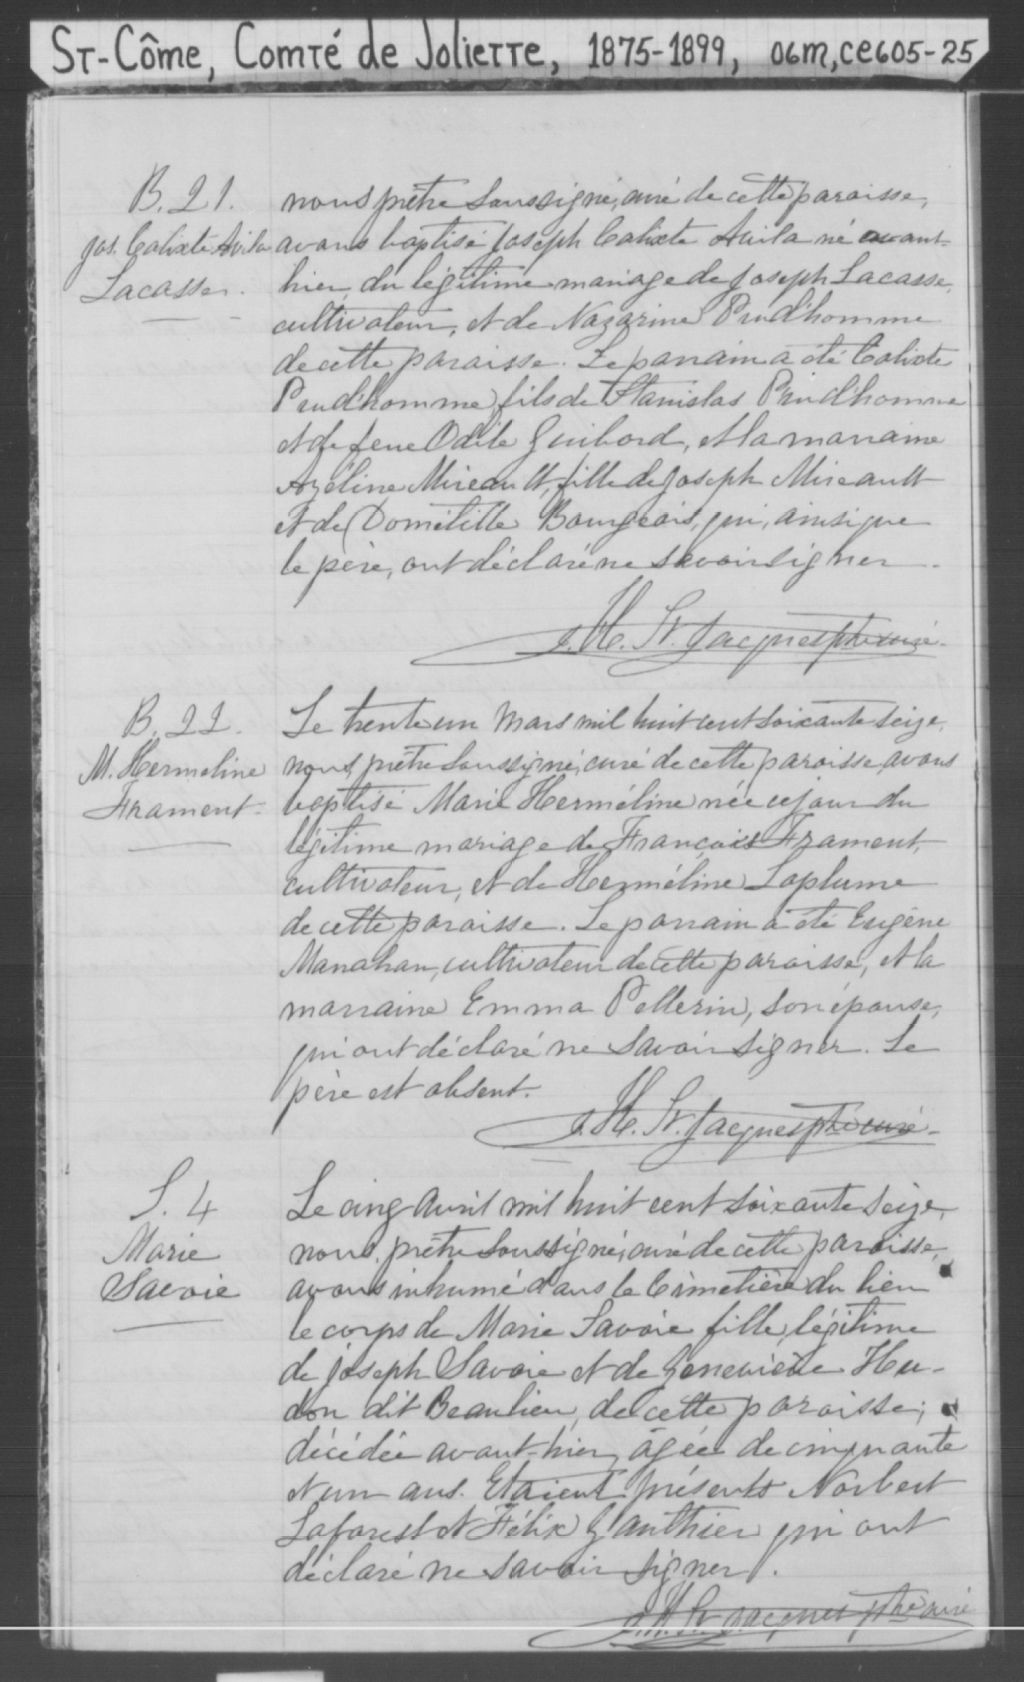 St-Côme, Comté de Joliette, 1875-1899, 06M,CE605-25
B. 21.
Jos. Calixte Avila
Lacasse.
nous prêtre soussigné, curé de cette paroisse,
avons baptisé Joseph Calixte Avila né avant-
hier, du légitime mariage de Joseph Lacasse,
cultivateur, et de Nazarine Prud'homme
de cette paroisse. Le parrain a été Calixte
Prud'homme, fils de Stanislas Prud'homme
et de feue Odile Guibord, et la marraine
Azéline Mireault, fille de Joseph Mireault
et de Domitille Bourgeois, qui, ainsi que
le père, ont déclaré ne savoir signer.
J. H. St. Jacques ptre curé
B. 22.
M. Hermeline
Frament.
Le trente un Mars mil huit cent soixante seize,
nous, prêtre soussigné, curé de cette paroisse, avons
baptisé Marie Herméline née ce jour du
légitime mariage de François Frament,
cultivateur, et de Herméline Laplume
de cette paroisse. Le parrain a été Eugène
Manahan, cultivateur de cette paroisse, et la
marraine Emma Pellerin, son épouse,
qui ont déclaré ne savoir signer. Le
père est absent.
J. H. St. Jacques ptre curé
S. 4
Marie
Savoie
Le cinq Avril mil huit cent soixante seize,
nous, prêtre soussigné, curé de cette paroisse,
avons inhumé dans le Cimetière du lieu
le corps de Marie Savoie fille légitime
de Joseph Savoie et de Geneviève Hu-
don dit Beaulieu, de cette paroisse,
décédée avant-hier, âgée de cinquante
et un ans. Etaient présents Norbert
Laforest et Félix Gauthier qui ont
déclaré ne savoir signer.
J. H. St. Jacques ptre curé